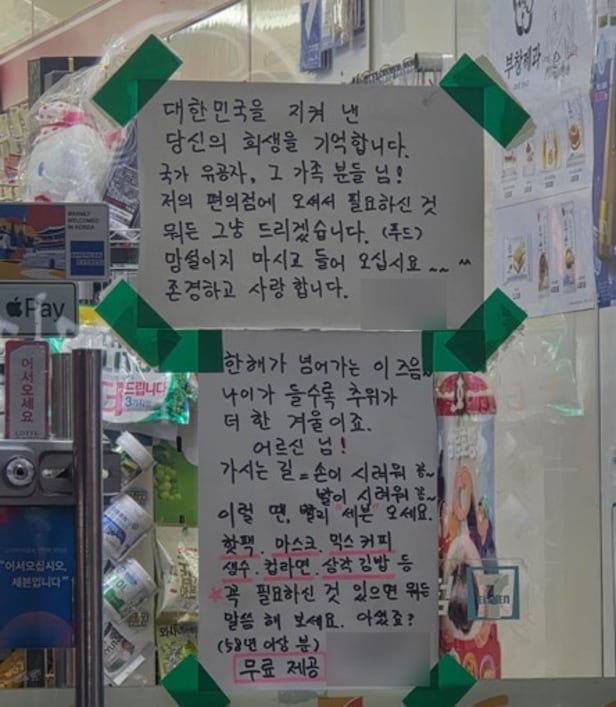 대한민국을 지켜 낸
당신의 희생을 기억합니다.
국가 유공자, 그 가족 분들 님!
저의 편의점에 오셔서 필요하신 것
뭐든 그냥 드리겠습니다. (푸드)
망설이지 마시고 들어 오십시요~~ ^^
존경하고 사랑 합니다.
한해가 넘어가는 이 즈음~
나이가 들수록 추위가
더 한 겨울이죠.
어르신 님!
가시는 길 = 손이 시려워 항~
발이 시려워 항~
이럴 땐, 빨리 "세븐" 오세요.
핫팩. 마스크. 믹스커피
생수. 컵라면. 삼각김밥 등
꼭 필요하신 것 있으면 뭐든
말씀 해 보세요. 아셨죠?
(58년 이상 분)
무료 제공
부창제과
WARMLY
WELCOMED
IN KOREA
AMERICAN
EXPRESS
Pay
어서오세요
드립니다
"어서오십시오,
세븐입니다"
7
ELEVEN